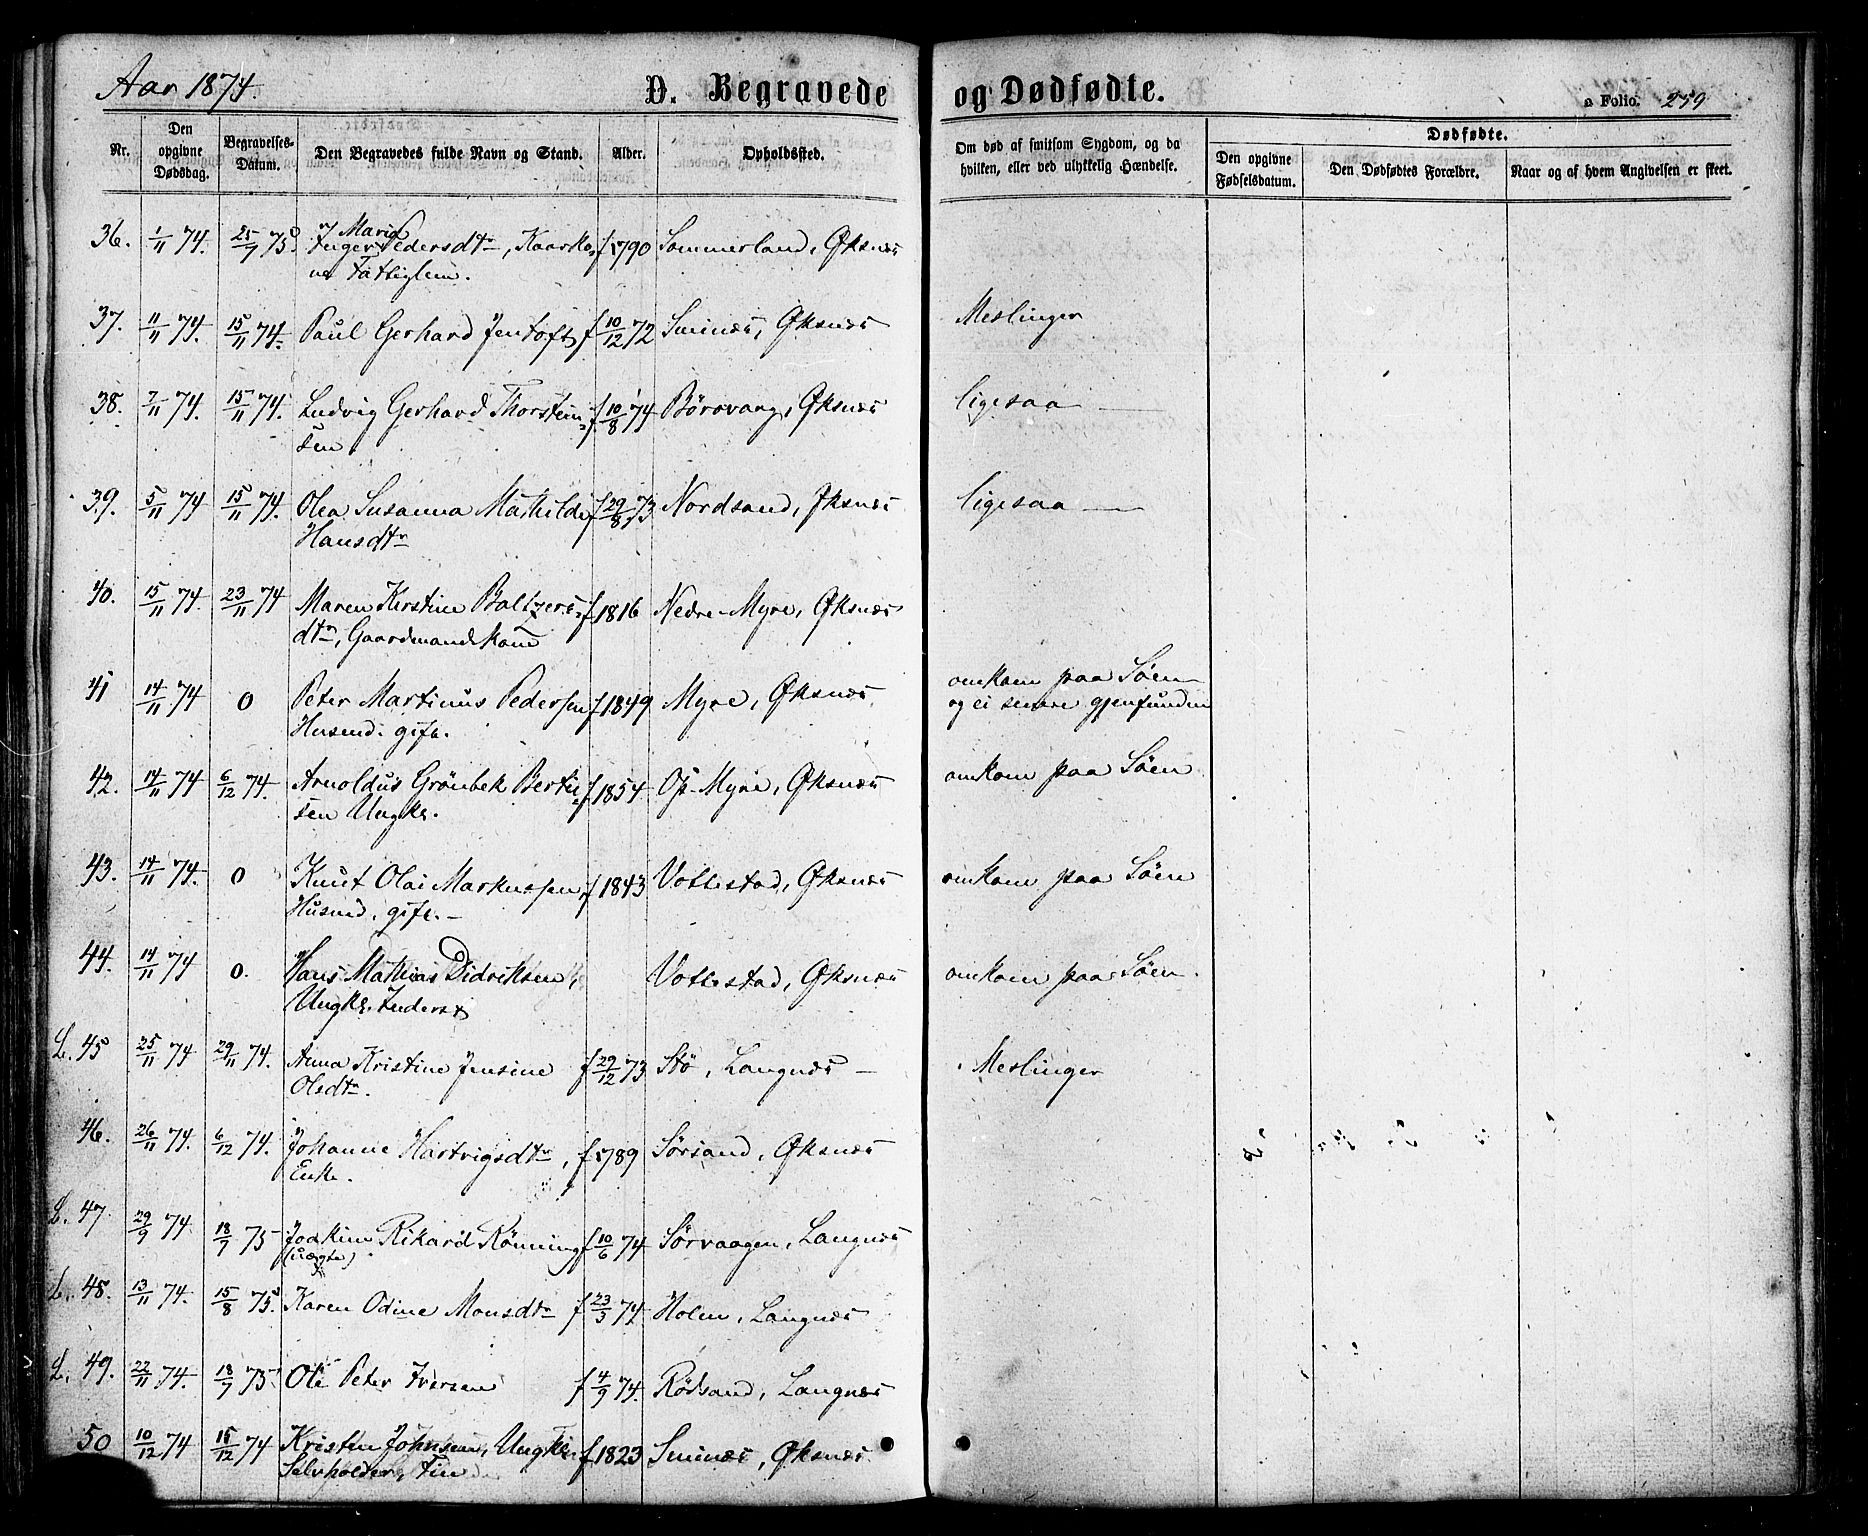 Aar 1874. D. Begravede og Dødfødte. Folio. 259
Nr. Den opgivne Dødsdag. Begravelses-Datum. Den Begravedes fulde Navn og Stand. Alder. Opholdssted. Om død af smitsom Sygdom, og da hvilken, eller ved ulykkelig Hændelse. Dødfødte. Den opgivne Fødselsdatum. Den Dødfødtes Forældre. Naar og af hvem Angivelsen er skeet.
36. 1/11 74. 25/7 75 Inger Maria Pedersdtr, Kaarko- f 1790 Sommerland, Øksnæs
ne Fattiglem.
37. 11/11 74. 15/11 74. Paul Gerhard Jentoft f 10/12 72 Sminæs, Øksnæs Meslinger
38. 7/11 74. 15/11 74. Ludvig Gerhard Thorstein= f 10/8 74 Børøvaag, Øksnæs ligesaa —
sen
39. 5/11 74 15/11 74. Olea Susanna Mathilde f 29/8 73 Nordsand, Øksnæs ligesaa —
Hansdtr
40. 15/11 74. 23/11 74 Maren Kirstine Baltzers= f 1816 Nedre-Myre, Øksnæs
dtr, Gaardmandskone
41 14/11 74 0 Peter Martinus Pedersen f 1849 Myre, Øksnæs omkom paa Søen
Husmd. gift. og ei senere gjenfunden
42. 14/11 74 6/12 74. Arnoldus Grönbek Bertin= f 1854 Op-Myre, Øksnæs omkom paa Søen
sen Ungk.
43. 14/11 74. 0 Knut Olai Markussen, f 1843 Vottestad, Øksnæs omkom paa Søen
Husmd, gift. –
44. 14/11 74 0. Hans Mathias Didriksen, Vottestad, Øksnæs omkom paa Søen.
Ungk. Inderst
L. 45 25/11 74 29/11 74. Anna Kristine Jensine f 29/12 73 Stø, Langnæs – Meslinger
Olsdtr.
46. 26/11 74. 6/12 74. Johanne Hartvigsdtr, f 1789 Sørsand, Øksnæs
Enke.
L. 47 29/9 74. 18/7 75 Joakim Rikard Rönning f 10/6 74 Sørvaagen, Langnæs
(uægte)
L. 48. 13/11 74. 15/8 75. Karen Odine Monsdtr f 23/5 74 Holm, Langnæs
L. 49. 22/11 74. 18/7 75. Ole Peter Iversen f 4/9 74. Rödsand, Langnæs
50 10/12 74 15/12 74 Kristen Johnsen, Ungk. f 1823 Sminæs, Øksnæs
Selvholder, Fin